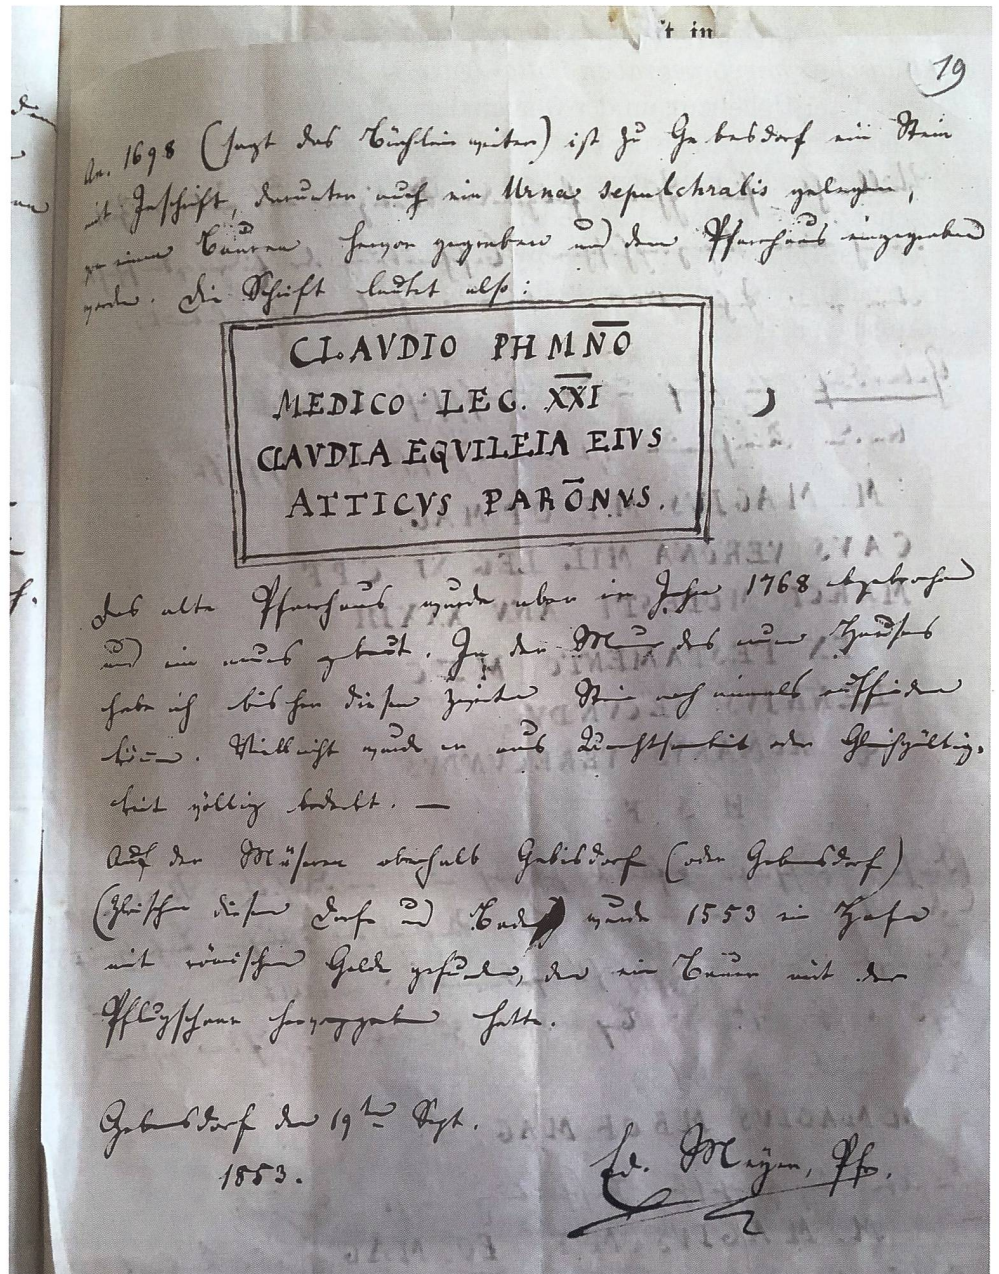 t in
19
An. 1698 (sagt das Büchlein weiter) ist zu Gebesdorf ein Stein
mit Inschrift, darunter auch ein Urna sepulchralis gelegen,
von einem Bauren hervor gegraben und dem Pfarrhaus eingegraben
worden. Die Schrift lautet also:
CLAVDIO PHMN̅O̅
MEDICO LEG. X̅X̅I
CLAVDIA EQVILEIA EIVS
ATTICVS PARO̅NVS.
Das alte Pfarrhaus wurde aber im Jahr 1768 abgebrochen
und ein neues gebaut. In der Mauer des neuen Hauses
habe ich bisher diesen zweiten Stein noch niemals auffinden
können. Vielleicht wurde er aus Unachtsamkeit oder Gleichgültig-
keit völlig bedeckt. —
Auf der Müseren oberhalb Gebisdorf (oder Gebensdorf)
(zwischen diesem Dorfe und Baden wurde 1553 ein Hafen
mit römischem Gelde gefunden, den ein Bauer mit der
Pflugschaar hervorgegraben hatte.
Gebensdorf den 19ten Sept.
1853.
Ed. Meyer, Pfr.